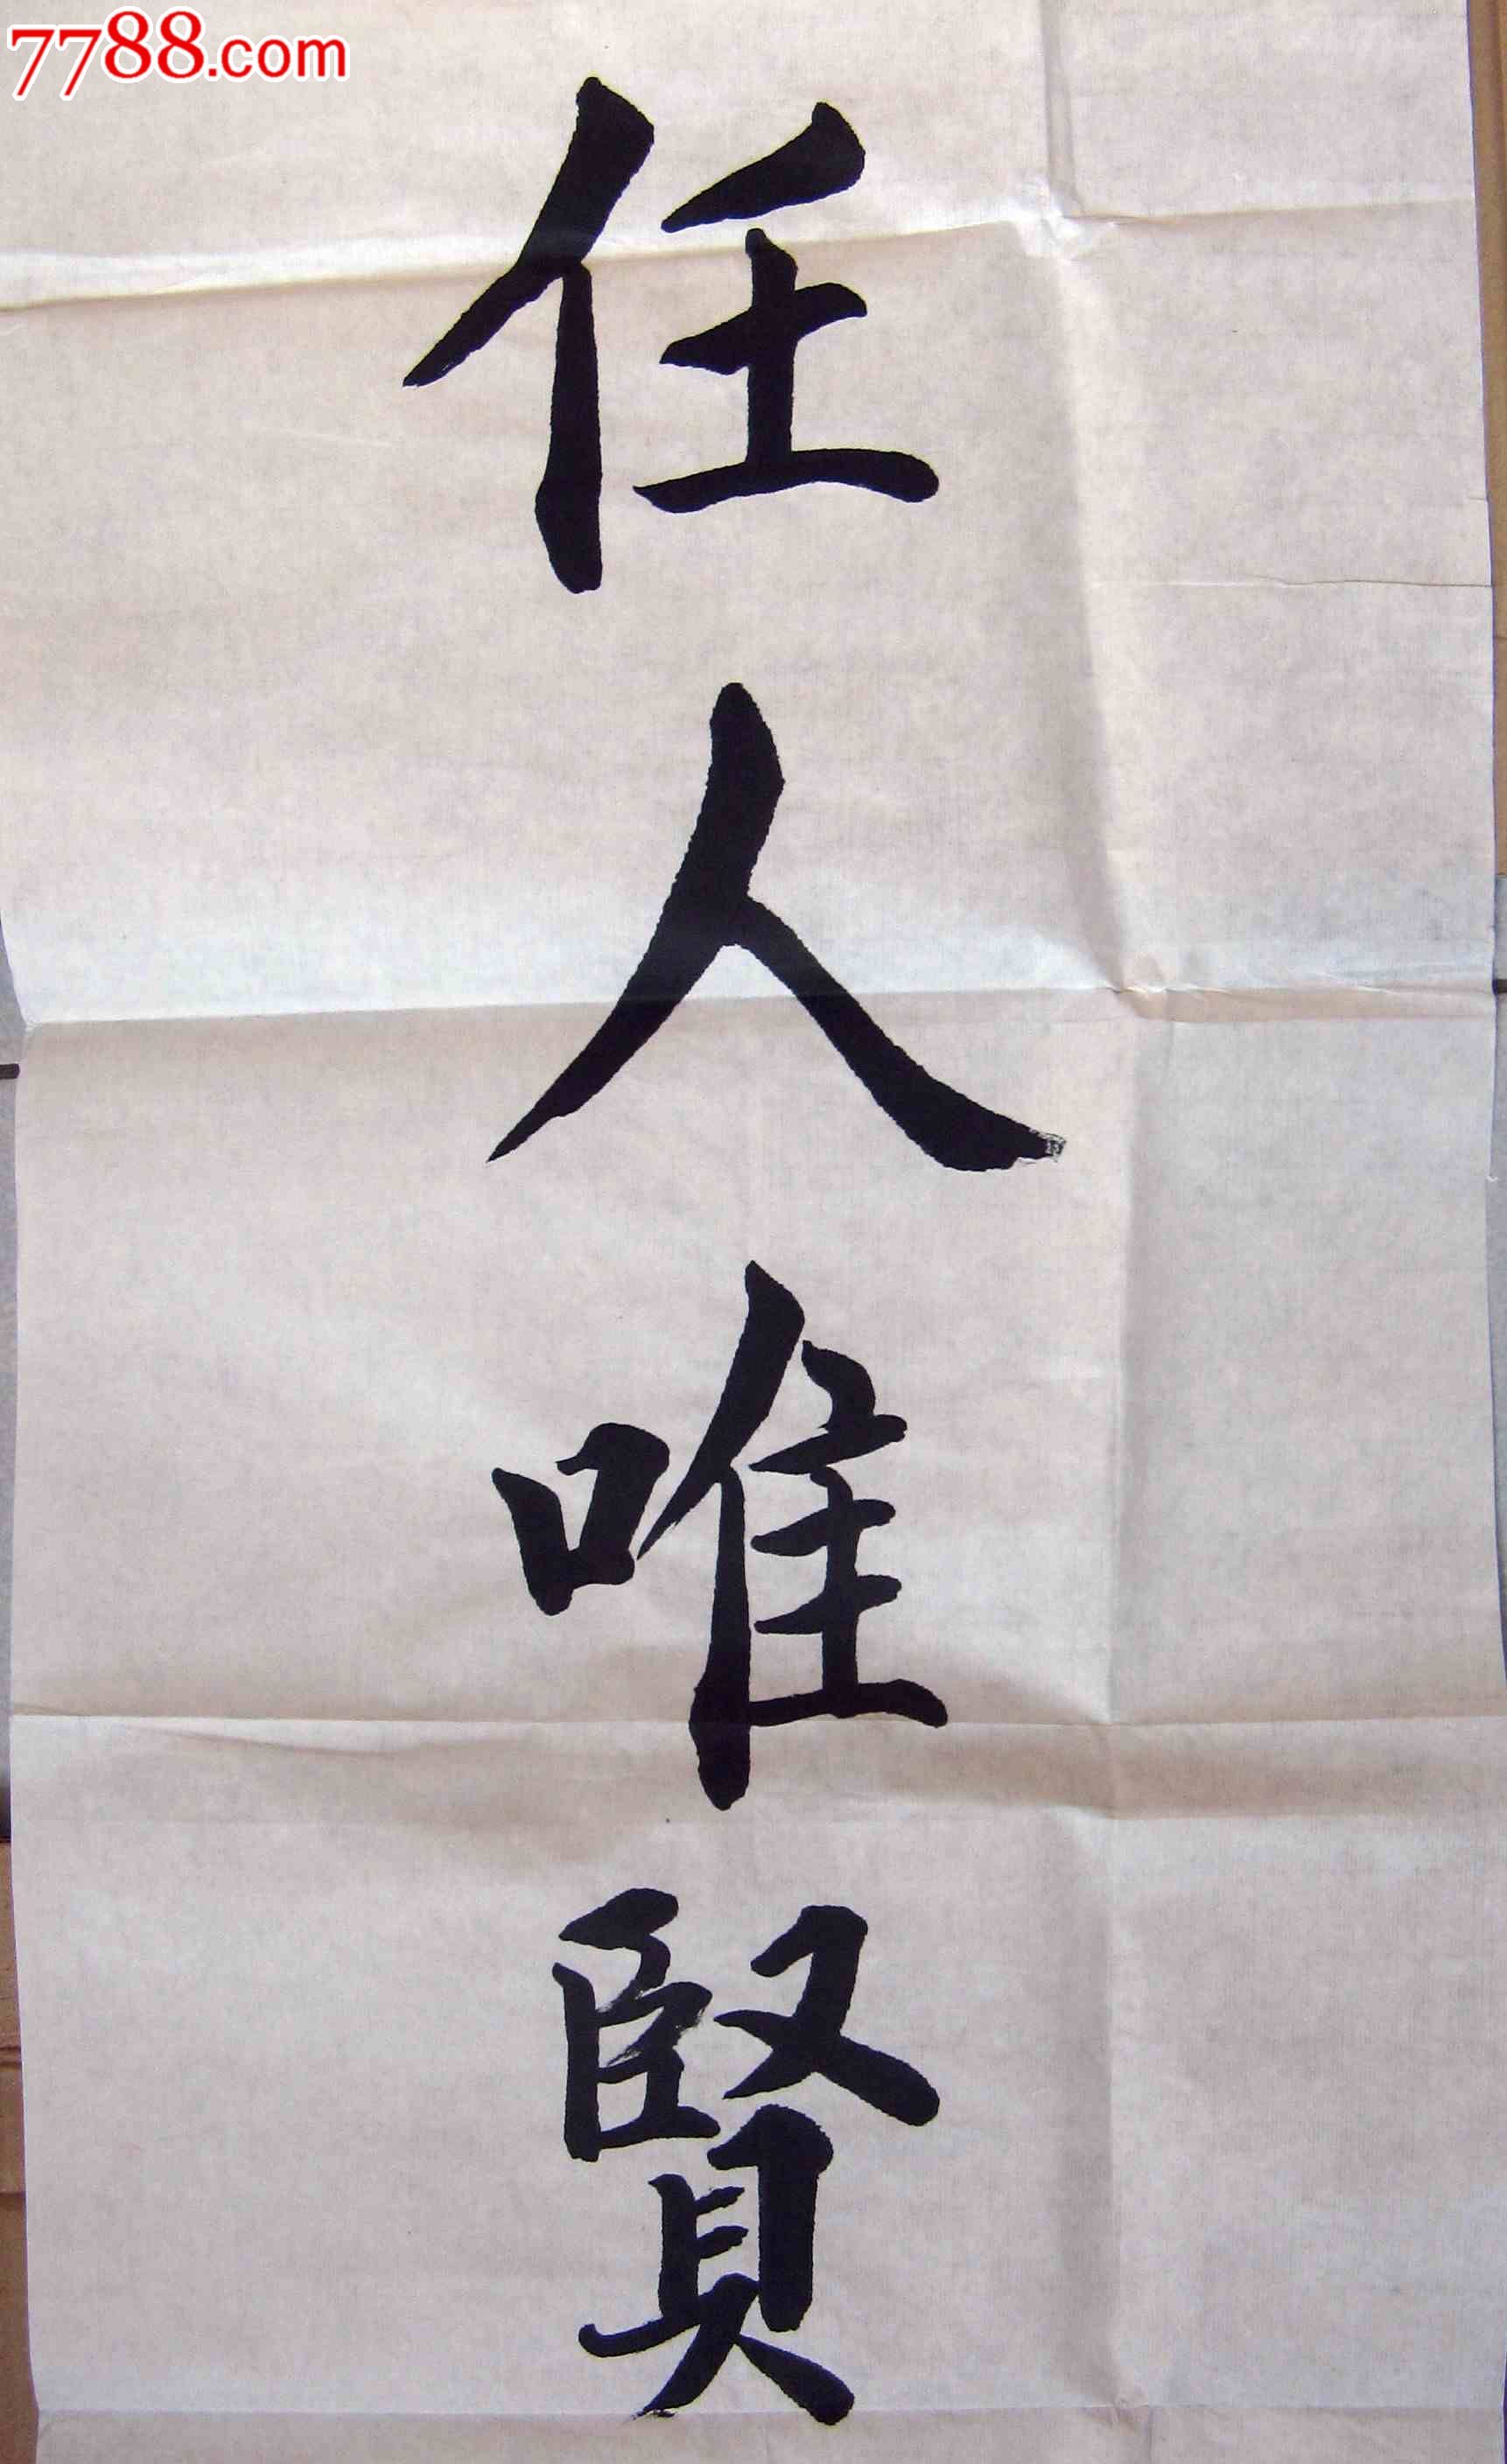 7788.com
任人唯賢